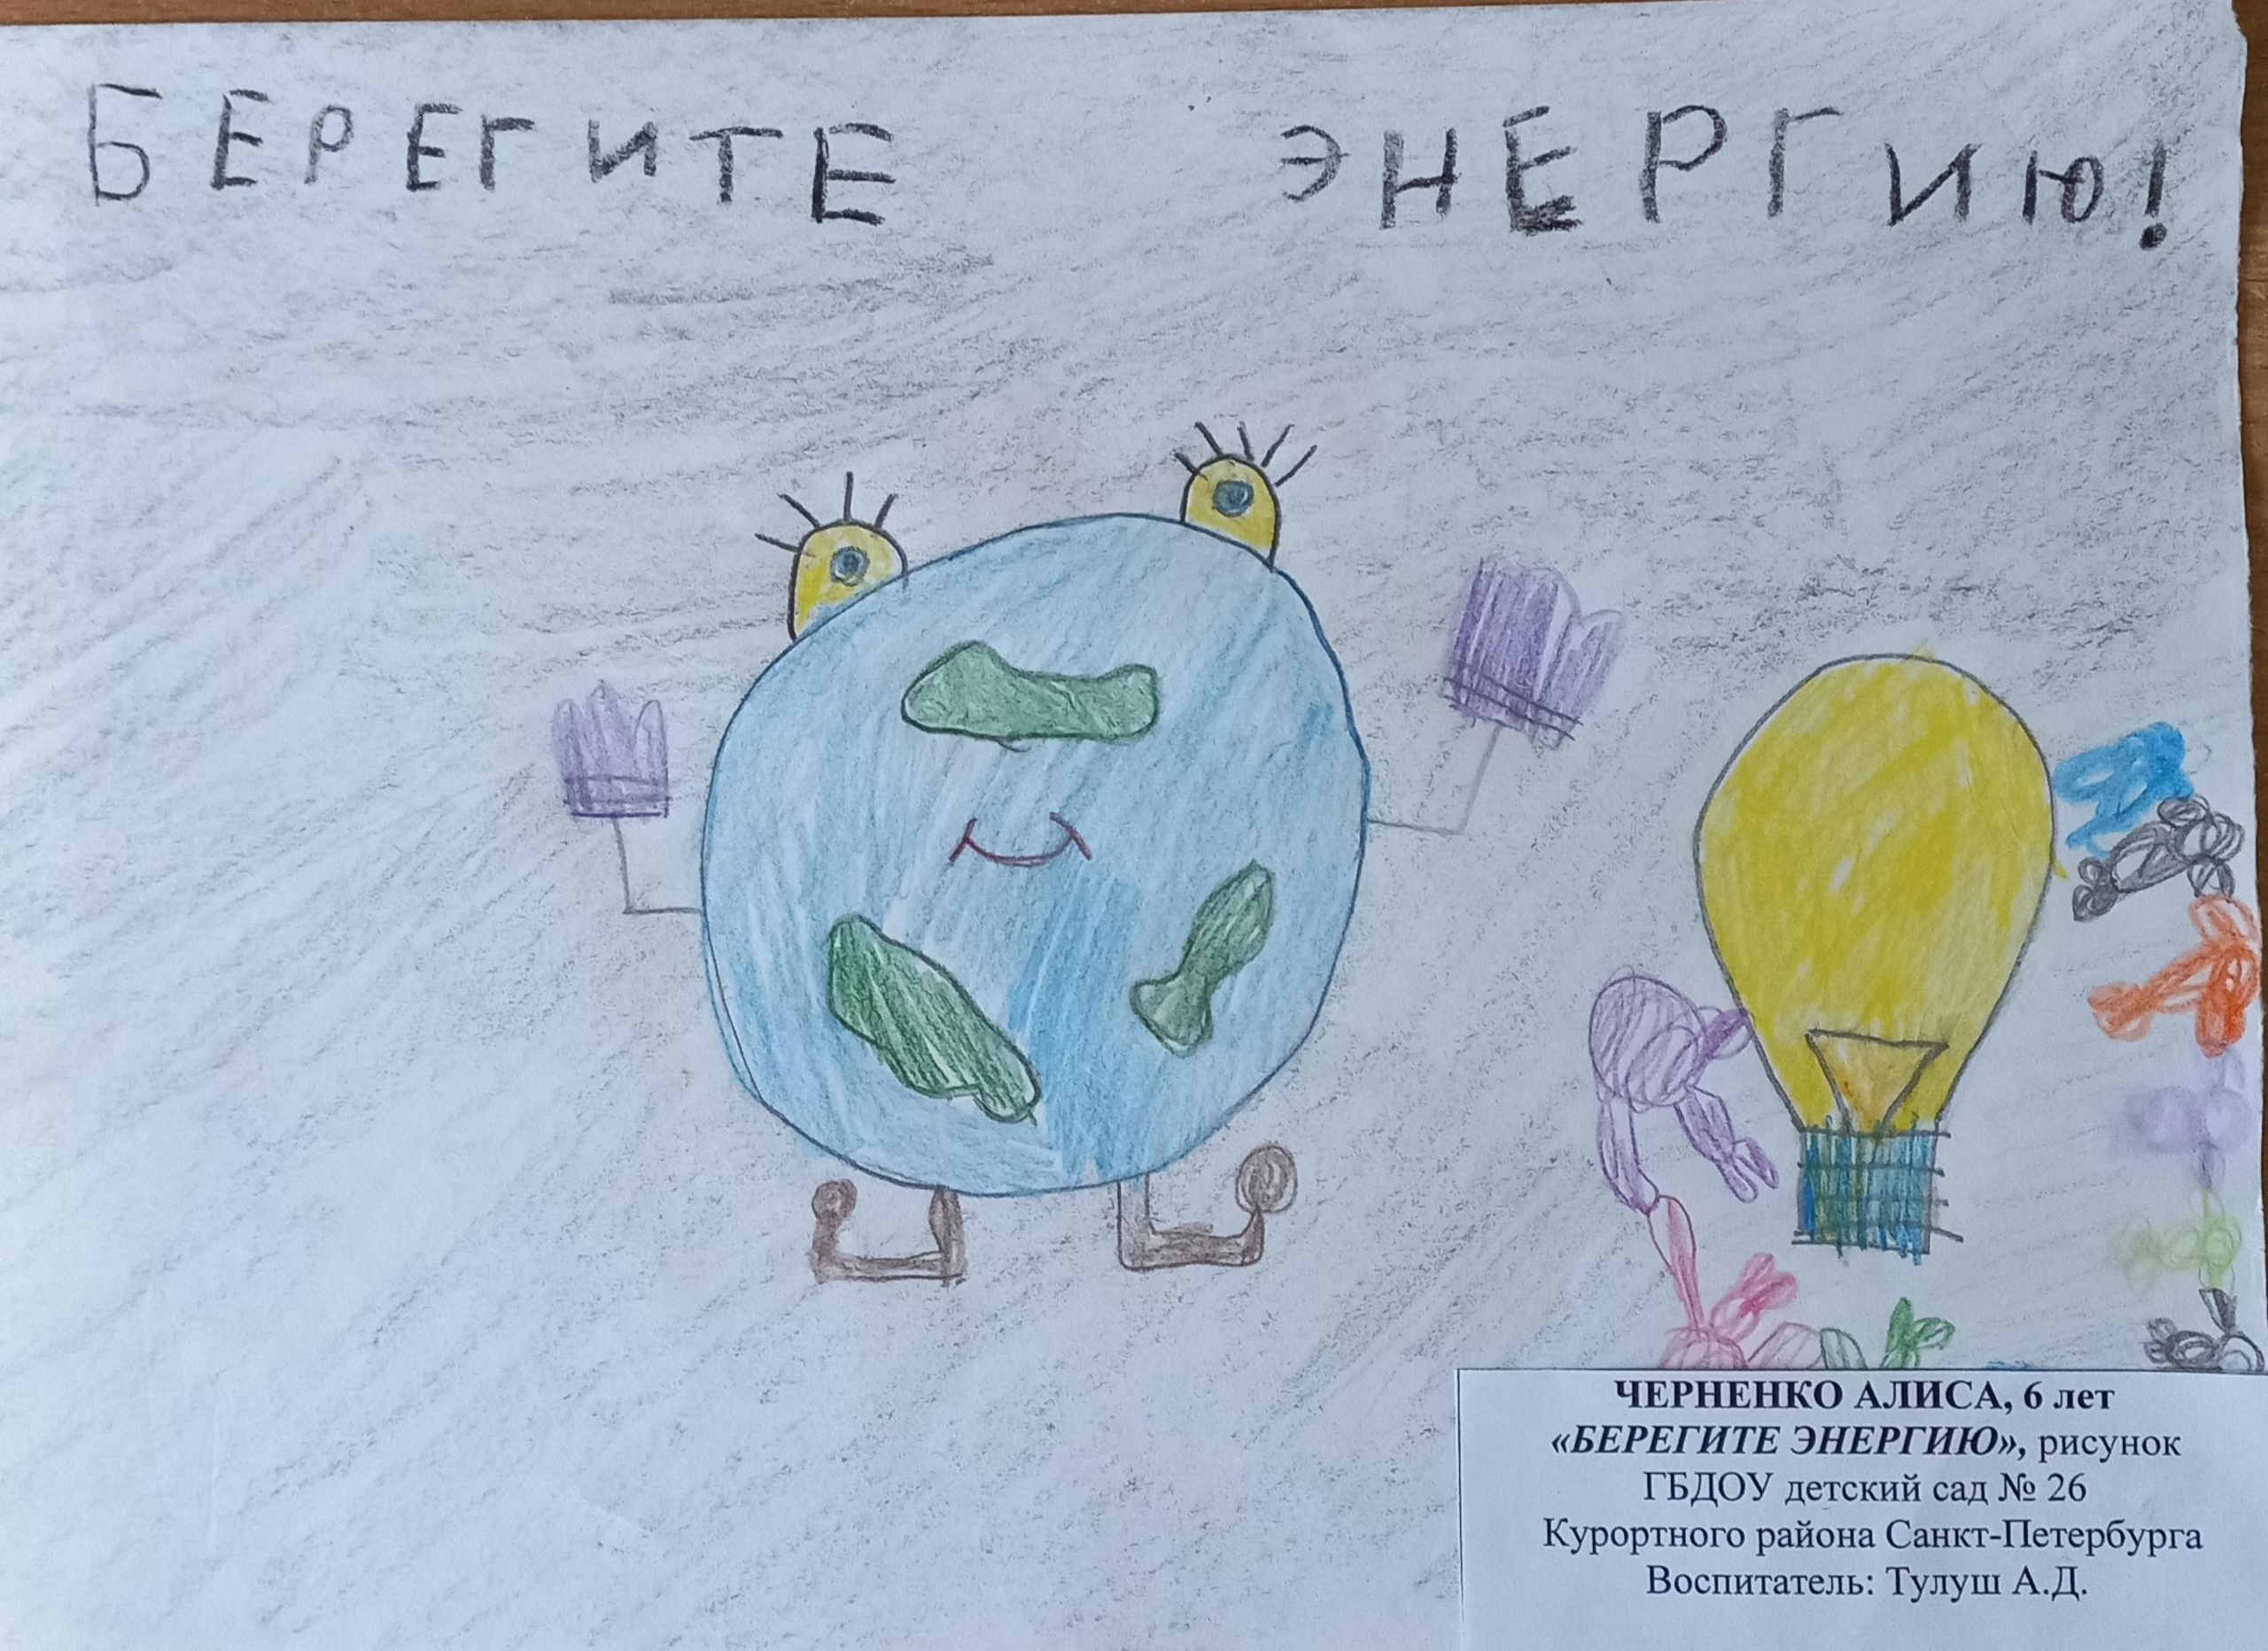 БЕРЕГИТЕ ЭНЕРГИЮ!
ЧЕРНЕНКО АЛИСА, 6 лет
«БЕРЕГИТЕ ЭНЕРГИЮ», рисунок
ГБДОУ детский сад № 26
Курортного района Санкт-Петербурга
Воспитатель: Тулуш А.Д.